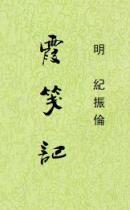 明 紀振倫
霞箋記